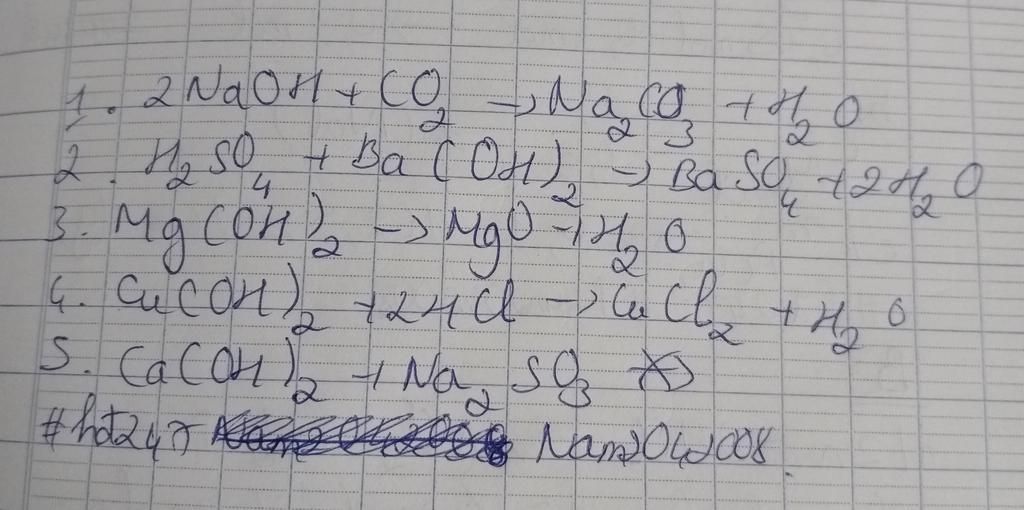 1. 2NaOH + CO₂ → Na₂CO₃ + H₂O
2. H₂SO₄ + Ba(OH)₂ → BaSO₄ + 2H₂O
3. Mg(OH)₂ → MgO + H₂O
4. Cu(OH)₂ + 2HCl → CuCl₂ + H₂O
5. Ca(OH)₂ + Na₂SO₃